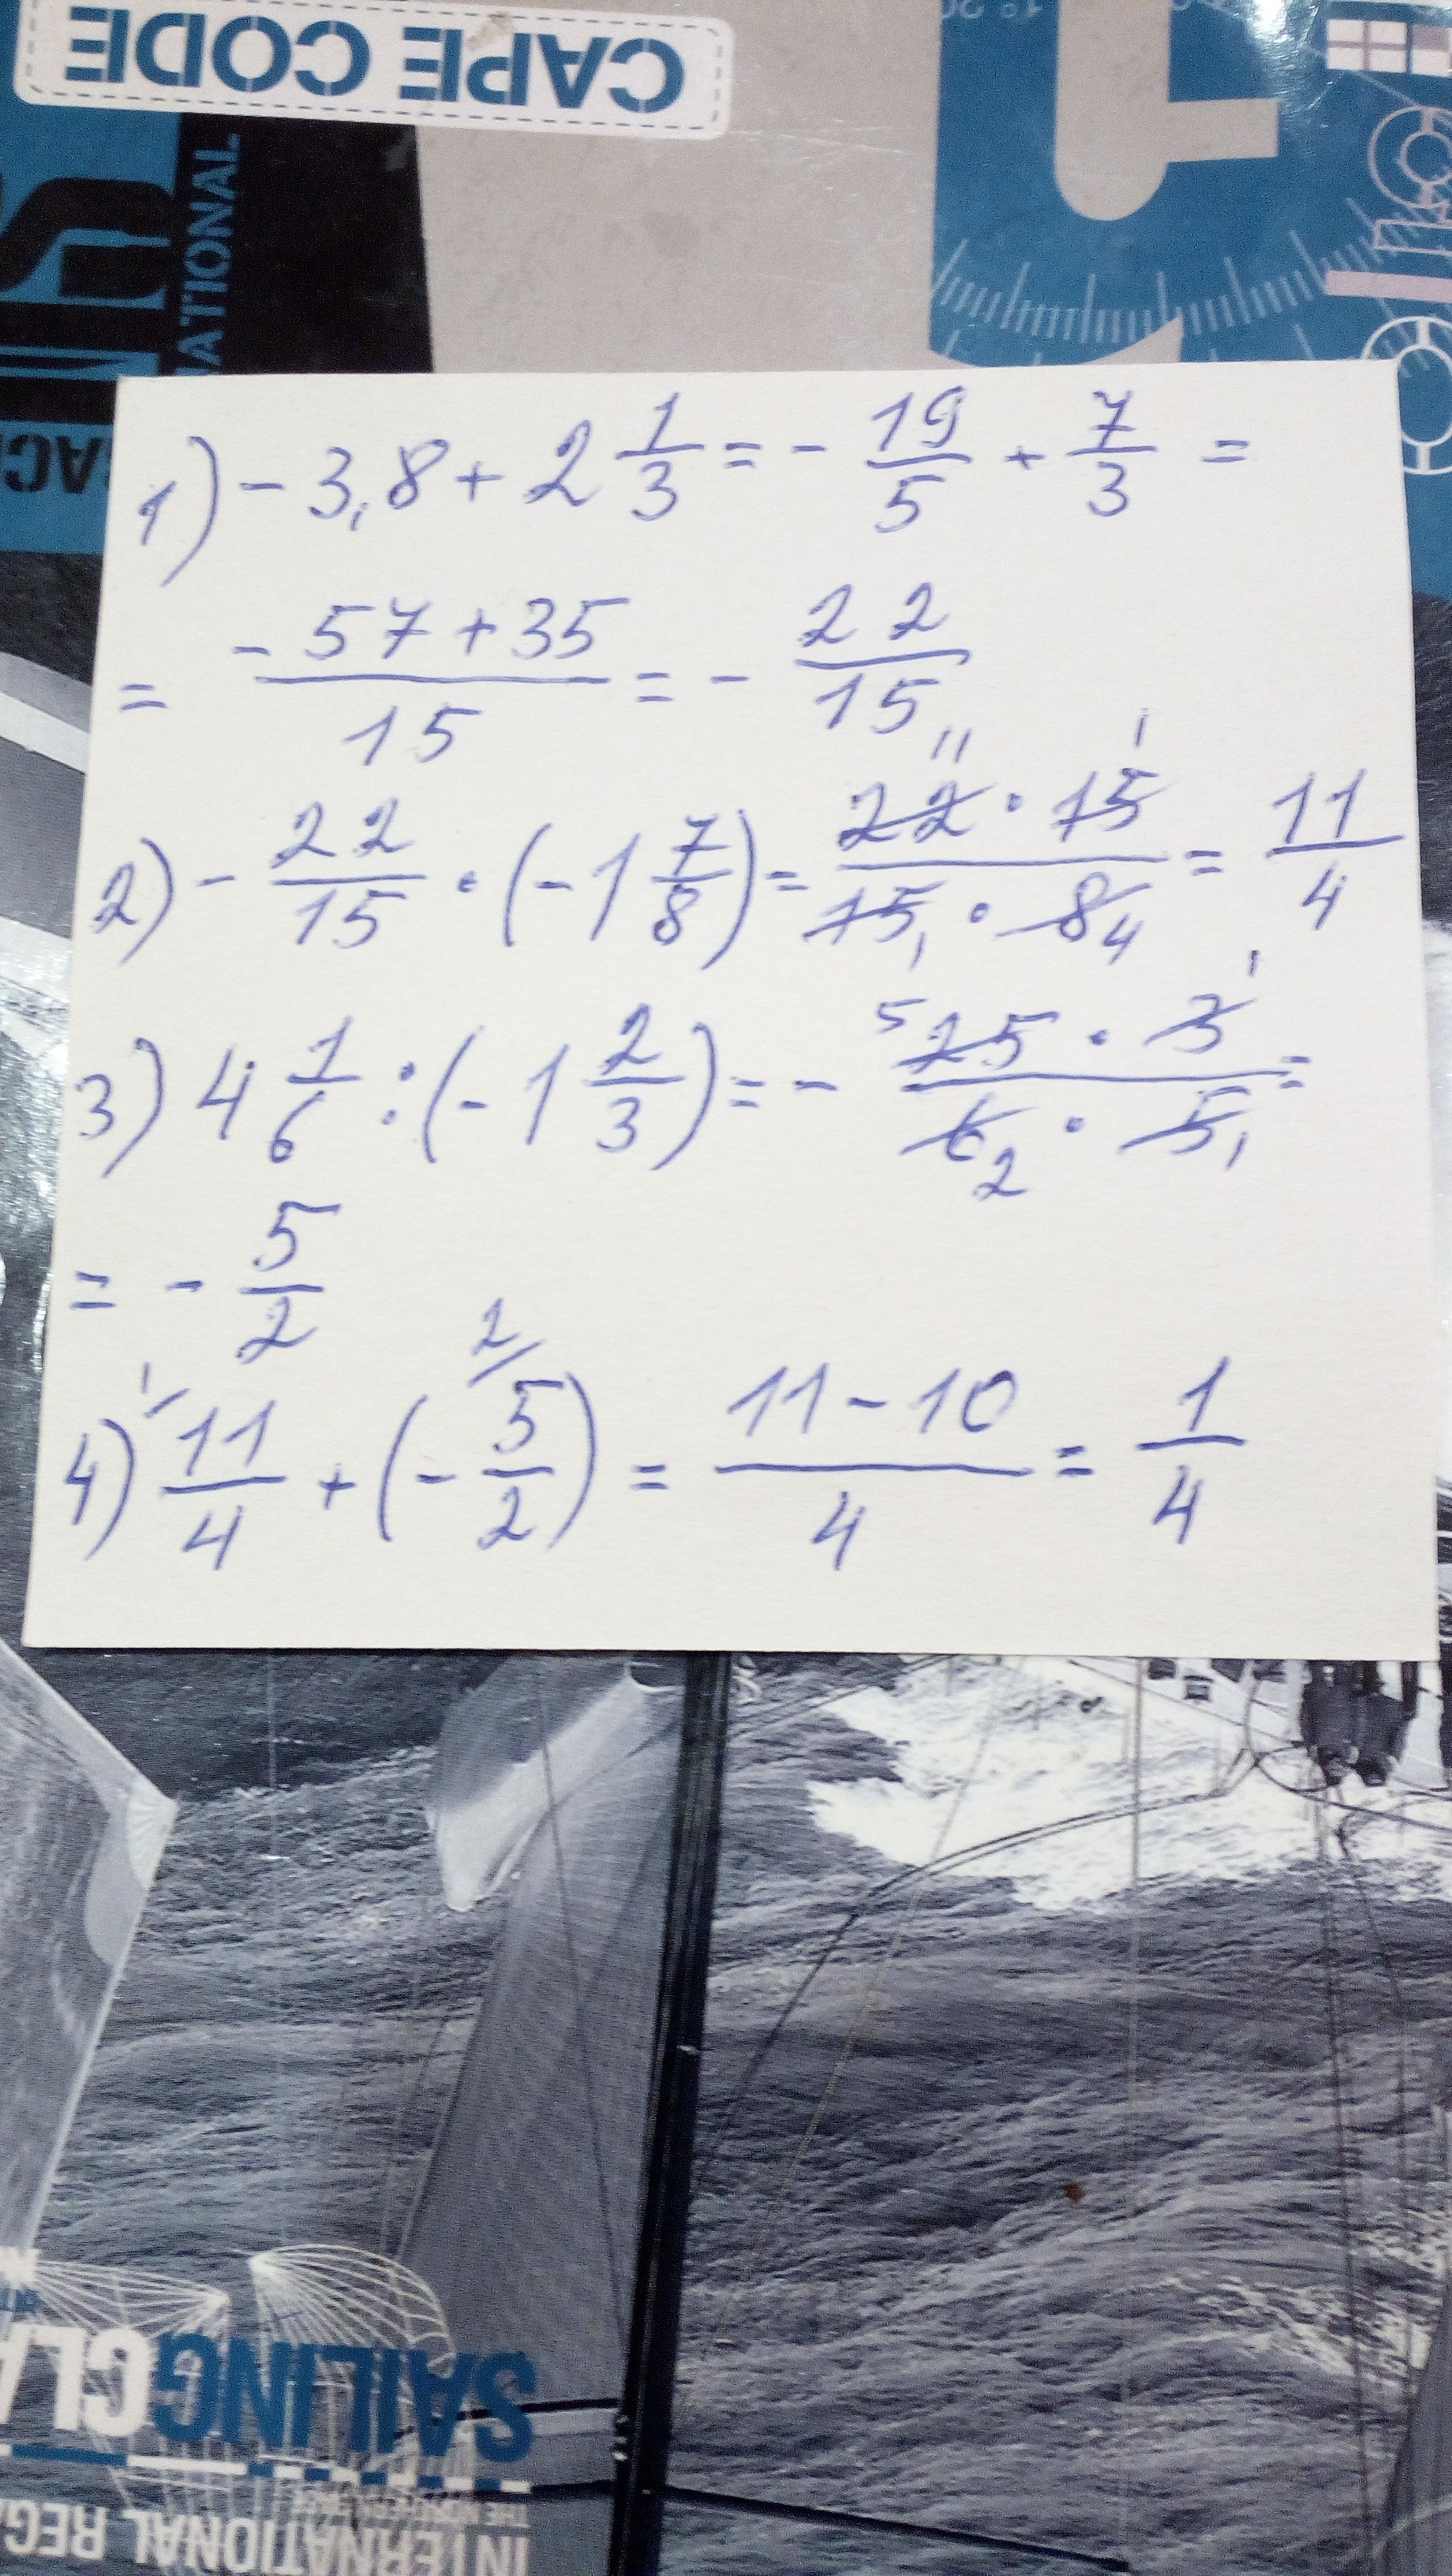 CAPE CODE
NATIONAL
1) - 3,8 + 2 1/3 = - 19/5 + 7/3 =
= - 57 + 35 / 15 = - 22/15
2) - 22/15 · (- 1 7/8) = 22 11 · 15 1 / 15 1 · 8 4 = 11/4
3) 4 1/6 : (- 1 2/3) = - 25 5 · 3 1 / 6 2 · 5 1 =
= - 5/2
4) 11/4 1 + (- 5/2 2) = 11 - 10 / 4 = 1/4
SAILING CLA
INTERNATIONAL REG